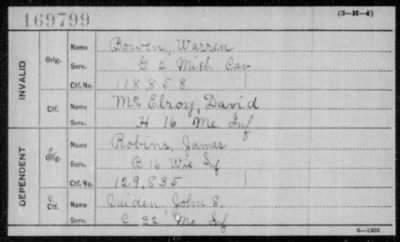 169799
(3-H-4)
INVALID
Orig.
Name Bowen, Warren
Serv. G 2 Mich Cav
Ctf. No. 118858
Ctf.
Name McElroy, David
Serv. H 16 Me Inf
DEPENDENT
Orig.
Name Robins, James
Serv. B 16 Wis Inf
Ctf. No. 129,835
C Ctf.
Name John S.
Serv. C 22 Mo Inf
6-1301